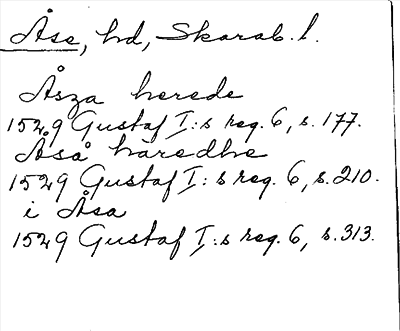 Åse, hd, Skarab. l.
Åsza herede
1529 Gustaf I:s reg. 6, s. 177.
Åså häredhe
1529 Gustaf I:s reg. 6, s. 210.
i Åsa
1529 Gustaf I:s reg. 6, s. 313.